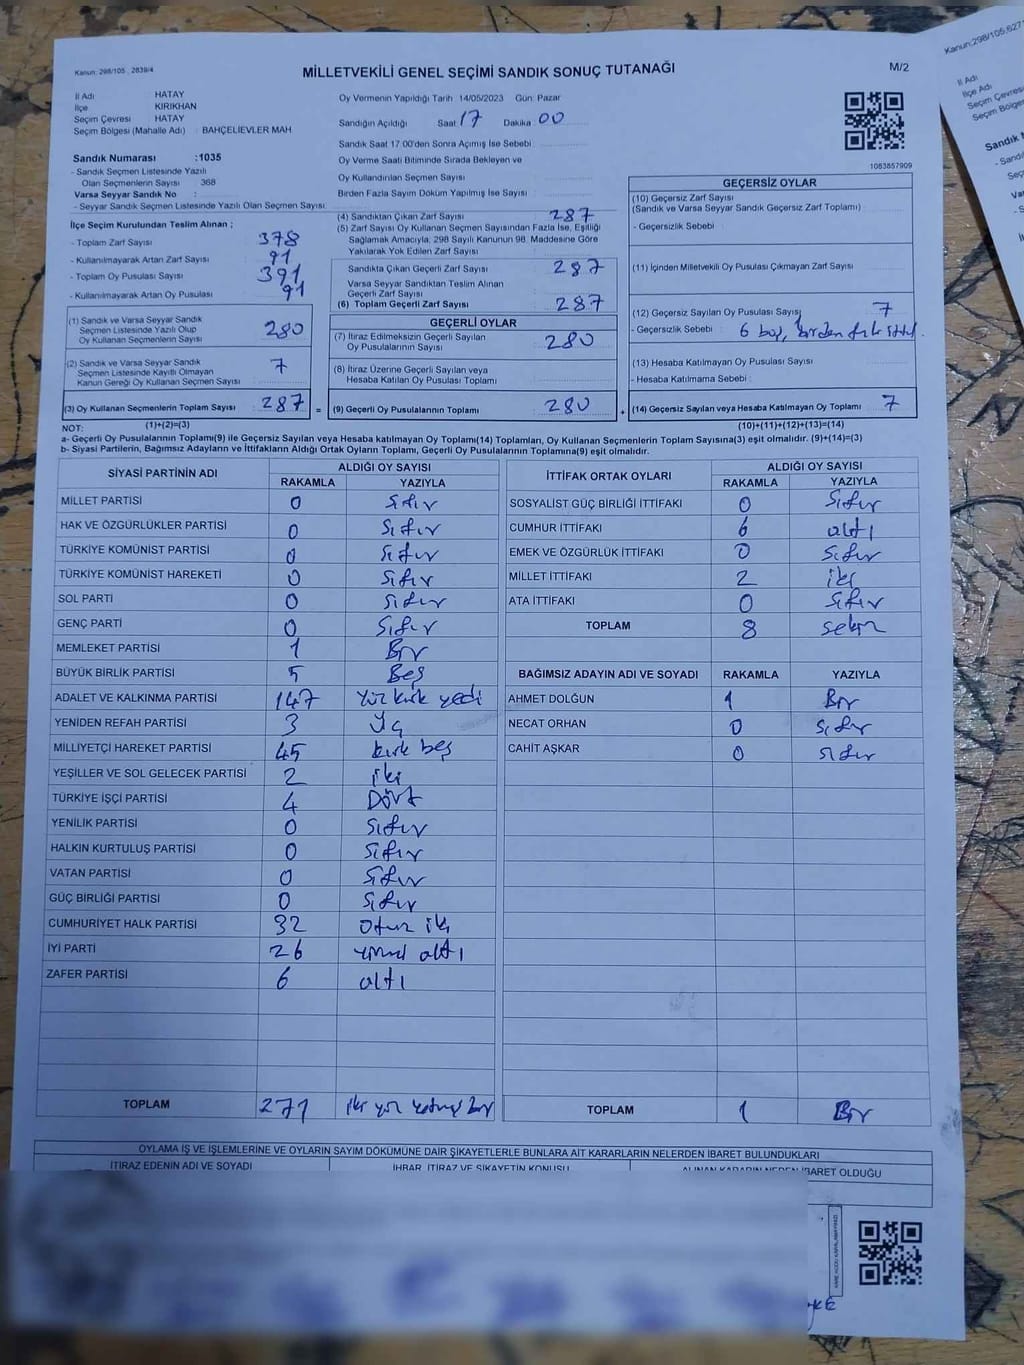 Kanun: 298/105 , 2839/4
MİLLETVEKİLİ GENEL SEÇİMİ SANDIK SONUÇ TUTANAĞI
M/2
İl Adı HATAY
İlçe KIRIKHAN
Seçim Çevresi HATAY
Seçim Bölgesi (Mahalle Adı) : BAHÇELİEVLER MAH
Oy Vermenin Yapıldığı Tarih 14/05/2023 Gün: Pazar
Sandığın Açıldığı Saat 17 Dakika 00
Sandık Saat 17:00'den Sonra Açımış İse Sebebi
Oy Verme Saati Bitiminde Sırada Bekleyen ve
Oy Kullandırılan Seçmen Sayısı
Birden Fazla Sayım Döküm Yapılmış İse Sayısı
1083857909
Sandık Numarası :1035
- Sandık Seçmen Listesinde Yazılı
Olan Seçmenlerin Sayısı 368
Varsa Seyyar Sandık No :
- Seyyar Sandık Seçmen Listesinde Yazılı Olan Seçmen Sayısı:
İlçe Seçim Kurulundan Teslim Alınan ;
- Toplam Zarf Sayısı 378
- Kullanılmayarak Artan Zarf Sayısı 91
- Toplam Oy Pusulası Sayısı 391
- Kullanılmayarak Artan Oy Pusulası 91
(1) Sandık ve Varsa Seyyar Sandık
Seçmen Listesinde Yazılı Olup
Oy Kullanan Seçmenlerin Sayısı 280
(2) Sandık ve Varsa Seyyar Sandık
Seçmen Listesinde Kayıtlı Olmayan
Kanun Gereği Oy Kullanan Seçmen Sayısı 7
(3) Oy Kullanan Seçmenlerin Toplam Sayısı 287 =
(1)+(2)=(3)
(4) Sandıktan Çıkan Zarf Sayısı 287
(5) Zarf Sayısı Oy Kullanan Seçmen Sayısından Fazla İse, Eşitliği
Sağlamak Amacıyla; 298 Sayılı Kanunun 98. Maddesine Göre
Yakılarak Yok Edilen Zarf Sayısı
Sandıkta Çıkan Geçerli Zarf Sayısı 287
Varsa Seyyar Sandıktan Teslim Alınan
Geçerli Zarf Sayısı
(6) Toplam Geçerli Zarf Sayısı 287
GEÇERLİ OYLAR
(7) İtiraz Edilmeksizin Geçerli Sayılan
Oy Pusulalarının Sayısı 280
(8) İtiraz Üzerine Geçerli Sayılan veya
Hesaba Katılan Oy Pusulası Toplamı
(9) Geçerli Oy Pusulalarının Toplamı 280 +
GEÇERSİZ OYLAR
(10) Geçersiz Zarf Sayısı
(Sandık ve Varsa Seyyar Sandık Geçersiz Zarf Toplamı)
- Geçersizlik Sebebi
(11) İçinden Milletvekili Oy Pusulası Çıkmayan Zarf Sayısı
(12) Geçersiz Sayılan Oy Pusulası Sayısı 7
- Geçersizlik Sebebi : 6 boş, birden
(13) Hesaba Katılmayan Oy Pusulası Sayısı
- Hesaba Katılmama Sebebi
(14) Geçersiz Sayılan veya Hesaba Katılmayan Oy Toplamı 7
(10)+(11)+(12)+(13)=(14)
NOT:
a- Geçerli Oy Pusulalarının Toplamı(9) ile Geçersiz Sayılan veya Hesaba katılmayan Oy Toplamı(14) Toplamları, Oy Kullanan Seçmenlerin Toplam Sayısına(3) eşit olmalıdır. (9)+(14)=(3)
b- Siyasi Partilerin, Bağımsız Adayların ve İttifakların Aldığı Ortak Oyların Toplamı, Geçerli Oy Pusulalarının Toplamına(9) eşit olmalıdır.
SİYASİ PARTİNİN ADI ALDIĞI OY SAYISI
RAKAMLA YAZIYLA
MİLLET PARTİSİ 0 Sıfır
HAK VE ÖZGÜRLÜKLER PARTİSİ 0 Sıfır
TÜRKİYE KOMÜNİST PARTİSİ 0 Sıfır
TÜRKİYE KOMÜNİST HAREKETİ 0 Sıfır
SOL PARTİ 0 Sıfır
GENÇ PARTİ 0 Sıfır
MEMLEKET PARTİSİ 1 Bir
BÜYÜK BİRLİK PARTİSİ 5 Beş
ADALET VE KALKINMA PARTİSİ 147 Yüz kırk yedi
YENİDEN REFAH PARTİSİ 3 Üç
MİLLİYETÇİ HAREKET PARTİSİ 45 kırk beş
YEŞİLLER VE SOL GELECEK PARTİSİ 2 iki
TÜRKİYE İŞÇİ PARTİSİ 4 Dört
YENİLİK PARTİSİ 0 Sıfır
HALKIN KURTULUŞ PARTİSİ 0 Sıfır
VATAN PARTİSİ 0 Sıfır
GÜÇ BİRLİĞİ PARTİSİ 0 Sıfır
CUMHURİYET HALK PARTİSİ 32 otuz iki
İYİ PARTİ 26 yirmi altı
ZAFER PARTİSİ 6 altı
TOPLAM 271 iki yüz yetmiş bir
İTTİFAK ORTAK OYLARI ALDIĞI OY SAYISI
RAKAMLA YAZIYLA
SOSYALİST GÜÇ BİRLİĞİ İTTİFAKI 0 Sıfır
CUMHUR İTTİFAKI 6 altı
EMEK VE ÖZGÜRLÜK İTTİFAKI 0 Sıfır
MİLLET İTTİFAKI 2 iki
ATA İTTİFAKI 0 Sıfır
TOPLAM 8 sekiz
BAĞIMSIZ ADAYIN ADI VE SOYADI RAKAMLA YAZIYLA
AHMET DOLĞUN 1 Bir
NECAT ORHAN 0 Sıfır
CAHİT AŞKAR 0 Sıfır
TOPLAM 1 Bir
OYLAMA İŞ VE İŞLEMLERİNE VE OYLARIN SAYIM DÖKÜMÜNE DAİR ŞİKAYETLERLE BUNLARA AİT KARARLARIN NELERDEN İBARET BULUNDUKLARI
İTİRAZ EDENİN ADI VE SOYADI İHBAR, İTİRAZ VE ŞİKAYETİN KONUSU ALINAN KARARIN NEDEN İBARET OLDUĞU
Kanun:298/105;627
İl Adı
İlçe Adı
Seçim Çevresi
Seçim Bölges
Sandık